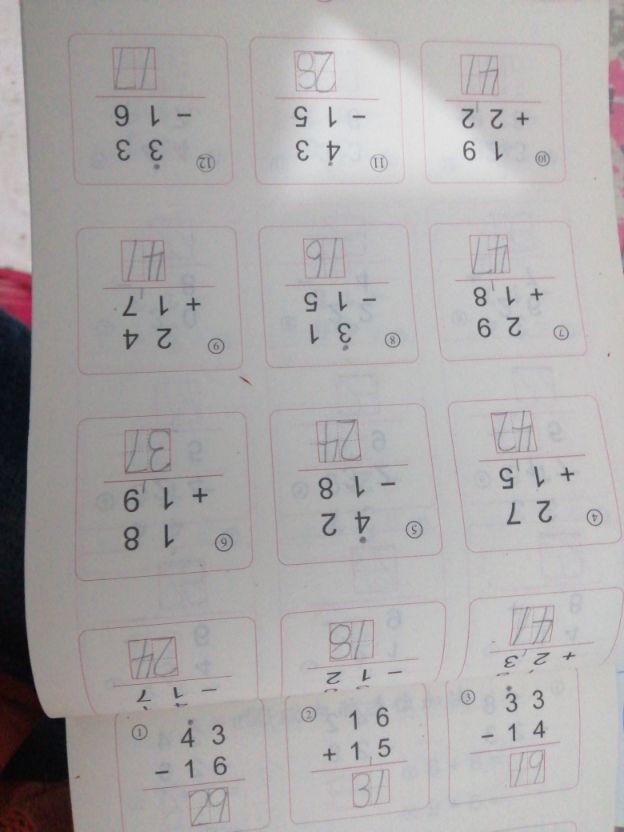 + 2 3
41
- 1 2
18
- 1 7
24
④ 2 7
+ 1 5
42
⑤ 4 2
- 1 8
24
⑥ 1 8
+ 1 9
37
⑦ 2 9
+ 1 8
47
⑧ 3 1
- 1 5
16
⑨ 2 4
+ 1 7
41
⑩ 1 9
+ 2 2
41
⑪ 4 3
- 1 5
28
⑫ 3 3
- 1 6
17
① 4 3
- 1 6
29
② 1 6
+ 1 5
31
③ 3 3
- 1 4
19